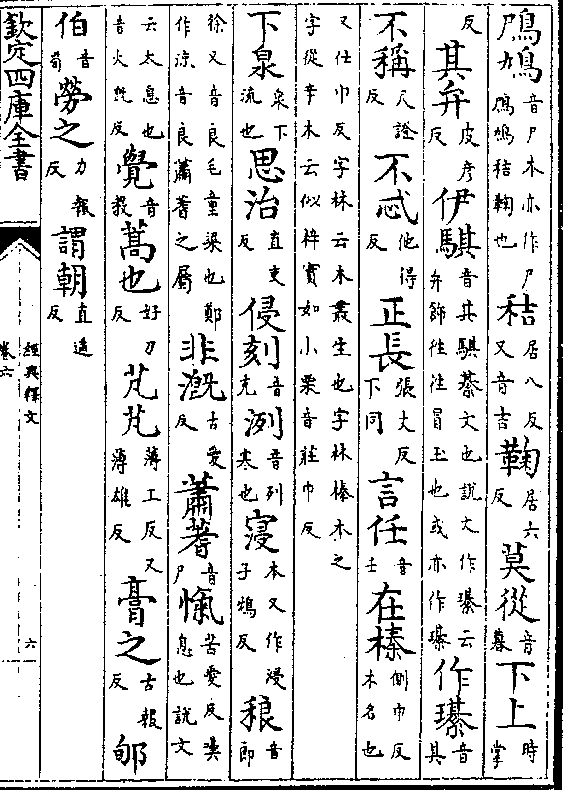 鳲鳩音尸木亦作尸鳲鳩秸鞠也秸居八反又音吉鞠居六反莫從音暮下上時掌
反其弁皮彦反伊騏音其騏綦文也説文作㻽云弁飾徃徃冒玉也或亦作璂作璂音其
不稱尺證反不忒他得反正長張丈反下同言任音壬在榛側巾反木名也
又仕巾反字林云木叢生也字林榛木之字從辛木云似梓實如小栗音莊巾反
下泉泉下流也思治直吏反侵刻音克洌音列寒也寖本又作浸子鴆反稂音郎
徐又音良毛童梁也鄭作凉音良蕭蓍之屬非溉古愛反蕭蓍音尸愾苦愛反嘆息也説文
云太息也音火旣反覺音教蒿也好刀反芃芃薄工反又薄雄反膏之古報反郇
伯音荀勞之力報反謂朝直遥反
欽定四庫全書
經典釋文
卷六
六